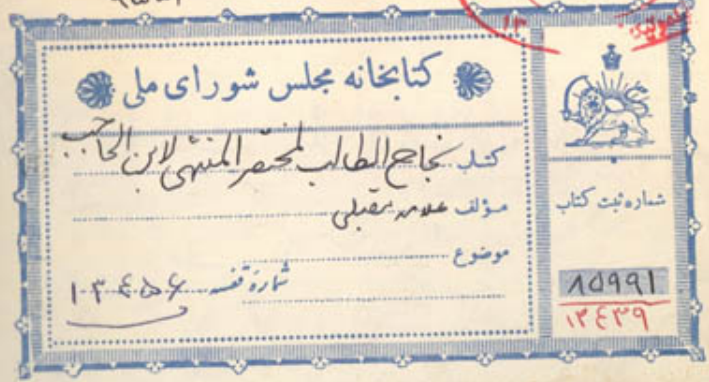 کتابخانه مجلس شورای ملی
کتاب نجاح الطالب لمختصر المنتهی لابن الحاجب
مؤلف علامه مقبلی
موضوع
شماره قفسه ۱۰۳۴۵۶
شماره ثبت کتاب
۸۵۹۹۱
۱۳۴۳۹
۱۳